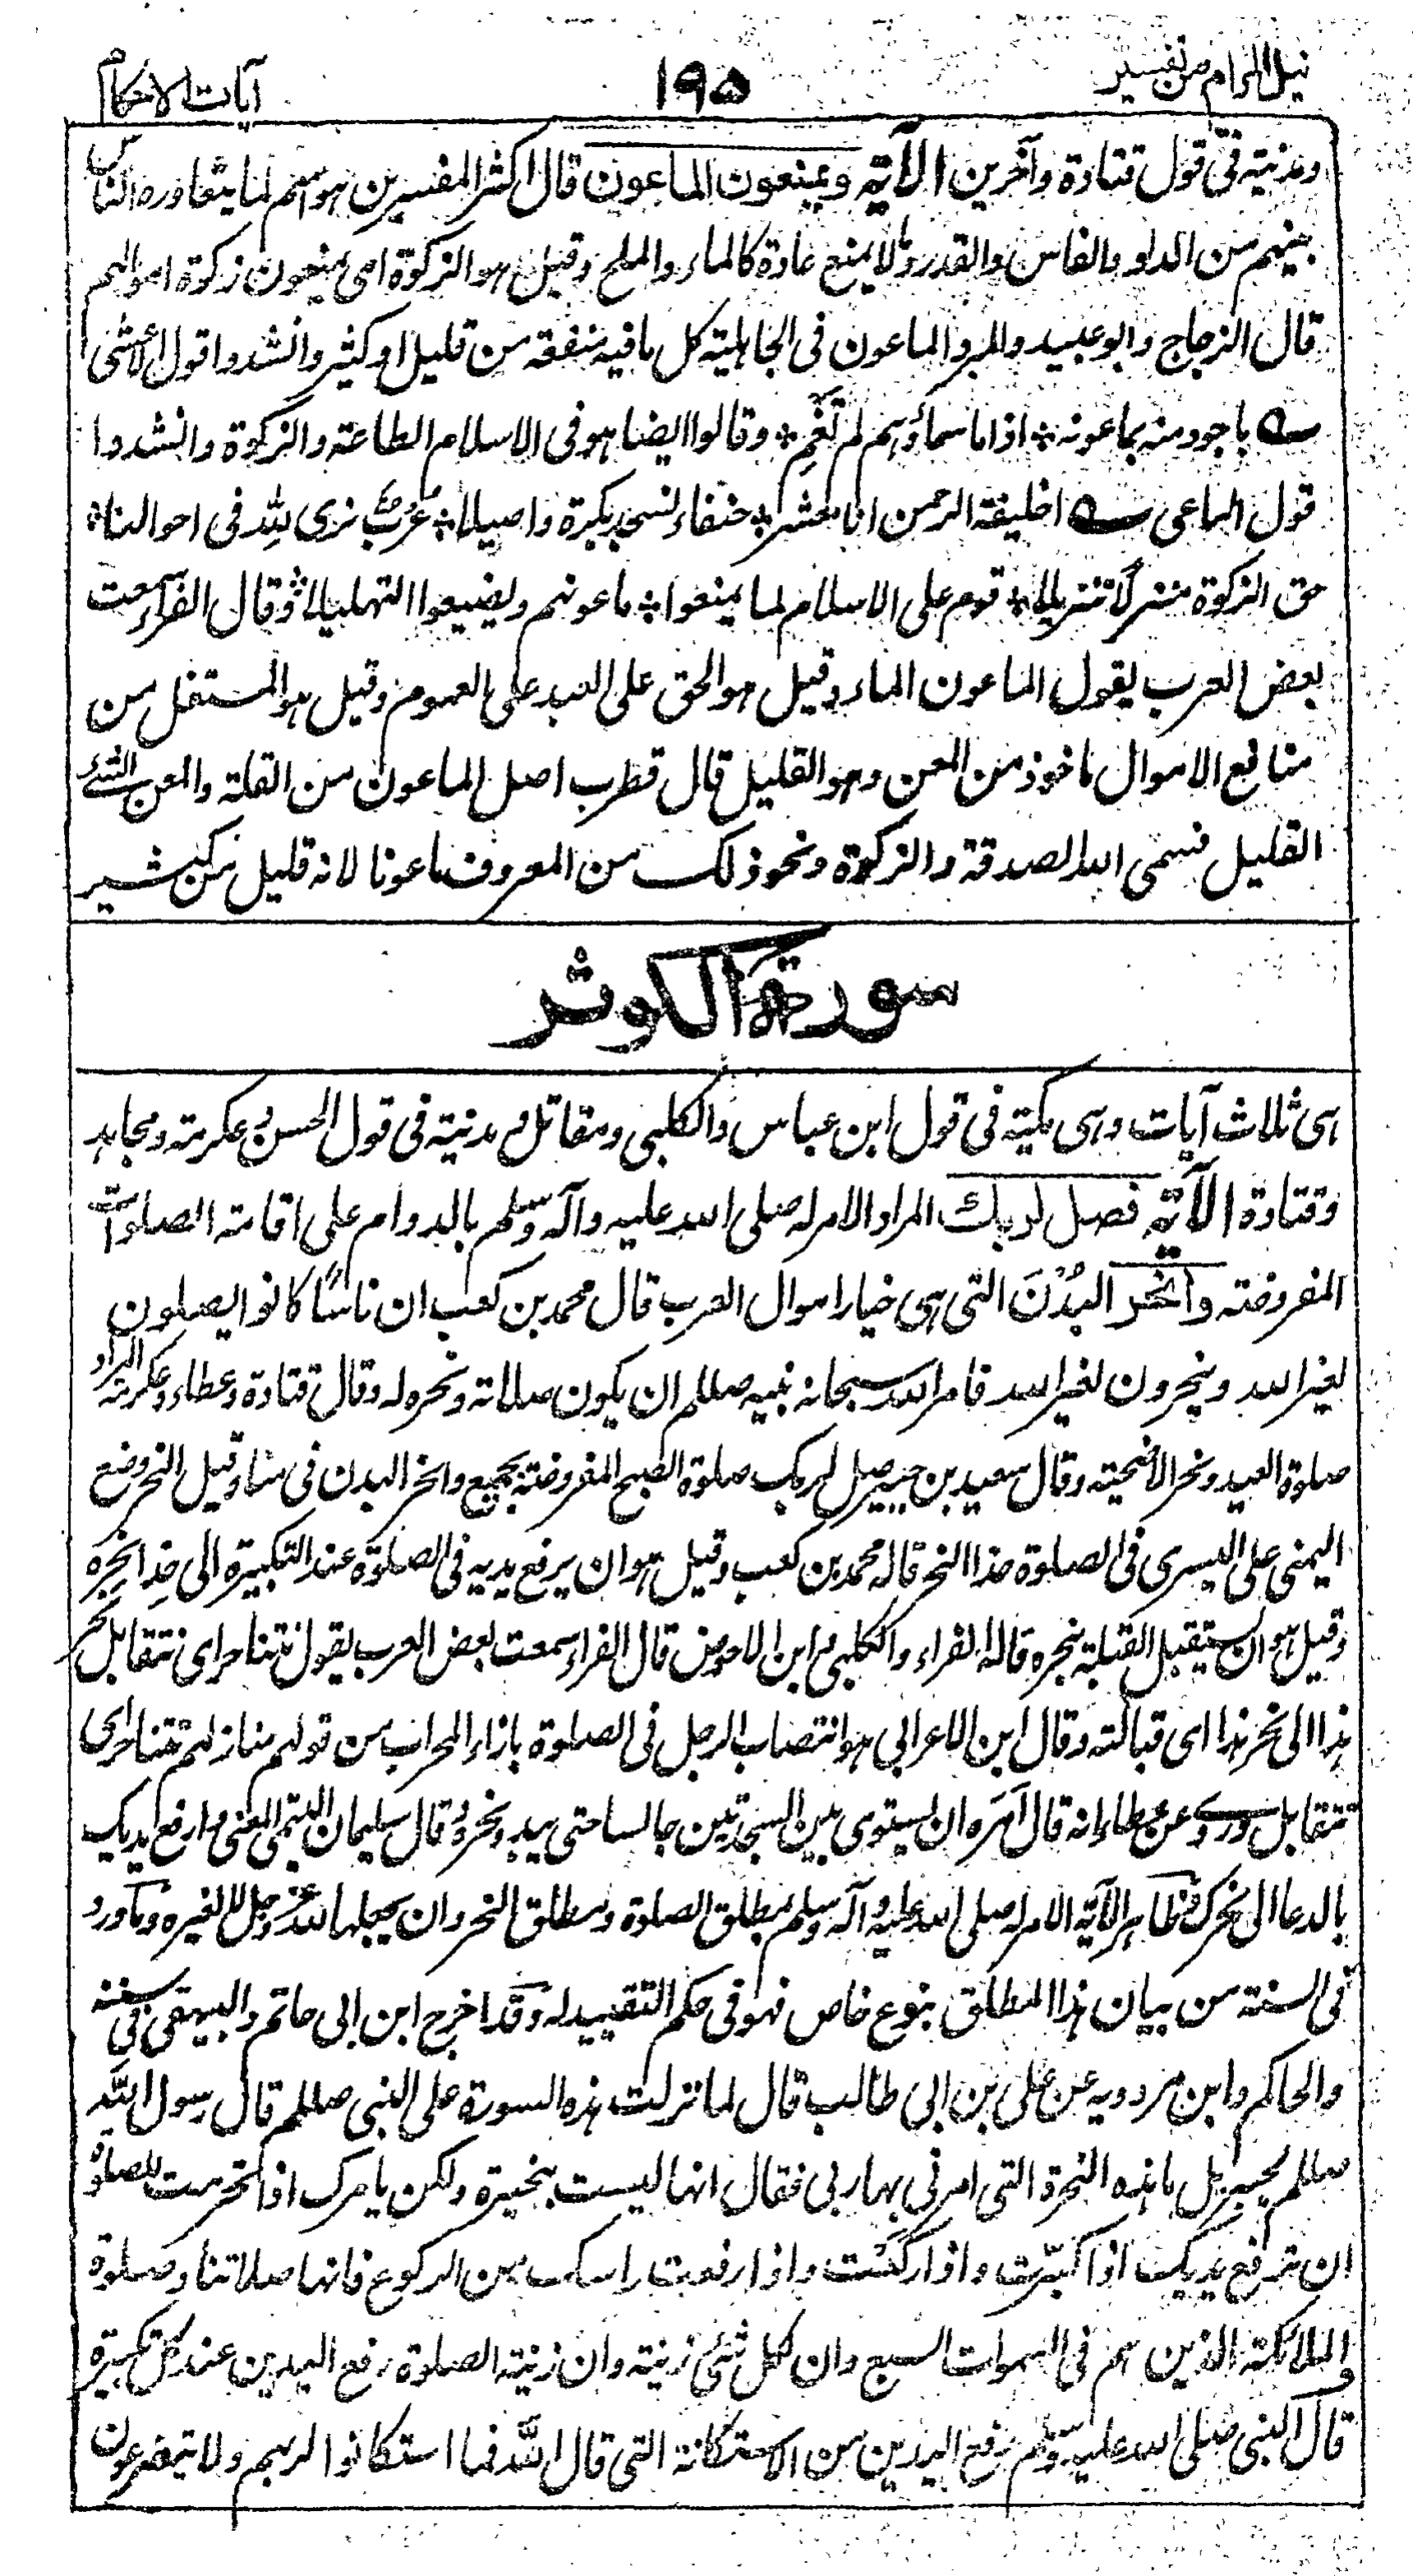 نيل المرام من تفسير ١٩٥ آيات الاحكام
ومدنية فى قول قتادة وآخرين الآية ويمنعون الماعون قال اكثر المفسرين هو اسم لما يتعاوره الناس
بينهم من الدلو والفاس والقدر ولا يمنع عادة كالماء والملح وقيل هو الزكوة اى يمنعون زكوة اموالهم
قال الزجاج وابو عبيد والمبرد الماعون فى الجاهلية كل ما فيه منفعة من قليل او كثير وانشدوا قول الاعشى
باجود منه بماعونه اذا ما سماؤهم لم تغم وقالوا ايضا هو فى الاسلام الطاعة والزكوة وانشدوا
قول الراعى اخليفة الرحمن انا معشر حنفاء نسجد بكرة واصيلا عرب نرى لله فى اموالنا
حق الزكوة منزلا تنزيلا قوم على الاسلام لما يمنعوا ماعونهم ويضيعوا التهليلا وقال الفراء سمعت
بعض العرب يقول الماعون الماء وقيل هو الحق على العبد على العموم وقيل هو المستغل من
منافع الاموال ماخوذ من المعن وهو القليل قال قطرب اصل الماعون من القلة والمعن الشئ
القليل فسمى الله الصدقة والزكوة ونحو ذلك من المعروف ماعونا لانه قليل من كثير
سورة الكوثر
هى ثلاث آيات وهى مكية فى قول ابن عباس والكلبى ومقاتل ومدنية فى قول الحسن وعكرمة ومجاهد
وقتادة الآية فصل لربك المراد الامر له صلى الله عليه وآله وسلم بالدوام على اقامة الصلوات
المفروضة وانحر البُدْنَ التى هى خيار اموال العرب قال محمد بن كعب ان ناسًا كانوا يصلون
لغير الله وينحرون لغير الله فامر الله سبحانه نبيه صللم ان يكون صلاته ونحره له وقال قتادة وعطاء وعكرمة المراد
صلوة العيد ونحر الاضحية وقال سعيد بن جبير صل لربك صلوة الصبح المفروضة بجمع وانحر البدن فى منا وقيل النحر وضع
اليمنى على اليسرى فى الصلوة حذا النحر قاله محمد بن كعب وقيل هو ان يرفع يديه فى الصلوة عند التكبيرة الى حذا نحره
وقيل هو ان يستقبل القبلة بنحره قاله الفراء والكلبى وابن الاحوص قال الفراء سمعت بعض العرب يقول نتناحر اى نتقابل نحر
هذا الى نحر هذا اى قبالته وقال ابن الاعرابى هو انتصاب الرجل فى الصلوة بازاء المحراب من قولهم منازلهم تتناحر اى
تتقابل وروى عن عطاء انه قال اَمَرَه ان يستوى بين السجدتين جالسا حتى يبدو نحره وقال سليمان التيمى المعنى وارفع يديك
بالدعا الى نحرك وظاهر الآية الامر له صلى الله عليه وآله وسلم بمطلق الصلوة ومطلق النحر وان يجعلها لله عز وجل لا لغيره وما ورد
فى السنة من بيان هذا المطلق بنوع خاص فهو فى حكم التقييد له وقد اخرج ابن ابى حاتم والبيهقى فى سننه
والحاكم وابن مردويه عن على بن ابى طالب قال لما نزلت هذه السورة على النبى صللم قال رسول الله
صللم لجبريل ما هذه النحرة التى امرنى بها ربى فقال انها ليست بنحيرة ولكن يامرك اذا تحرمت للصلوة
ان ترفع يديك اذا كبّرت واذا ركعت واذا رفعت راسك من الركوع فانها صلاتنا وصلوة
الملائكة الذين هم فى السموات السبع وان لكل شئ زينة وان زينة الصلوة رفع اليدين عند كل تكبيرة
وقال النبى صلى الله عليه وسلم رفع اليدين من الاستكانة التى قال الله فما استكانوا لربهم ولا يتضرعون